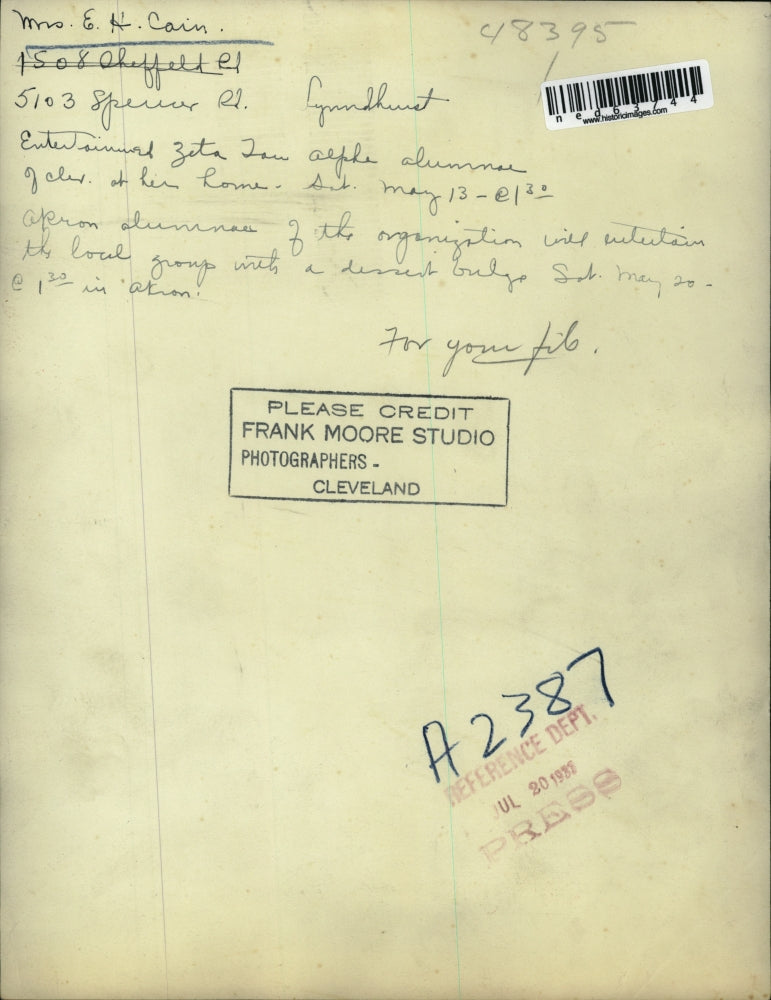 Mrs. E. H. Cain.
48395
1508 Sheffeld Rd
5103 Spencer Rd. Lynndhurst
ned63744
www.historicimages.com
Entertained Zeta Tau alpha alumnae
of clev. at her home - Sat. May 13 - @ 1 30
akron alumnae of the organization will entertain
the local group with a dessert bridge Sat. May 20 -
@ 1 30 in akron.
For your file.
PLEASE CREDIT
FRANK MOORE STUDIO
PHOTOGRAPHERS -
CLEVELAND
A2387
REFERENCE DEPT.
JUL 20 1939
PRESS